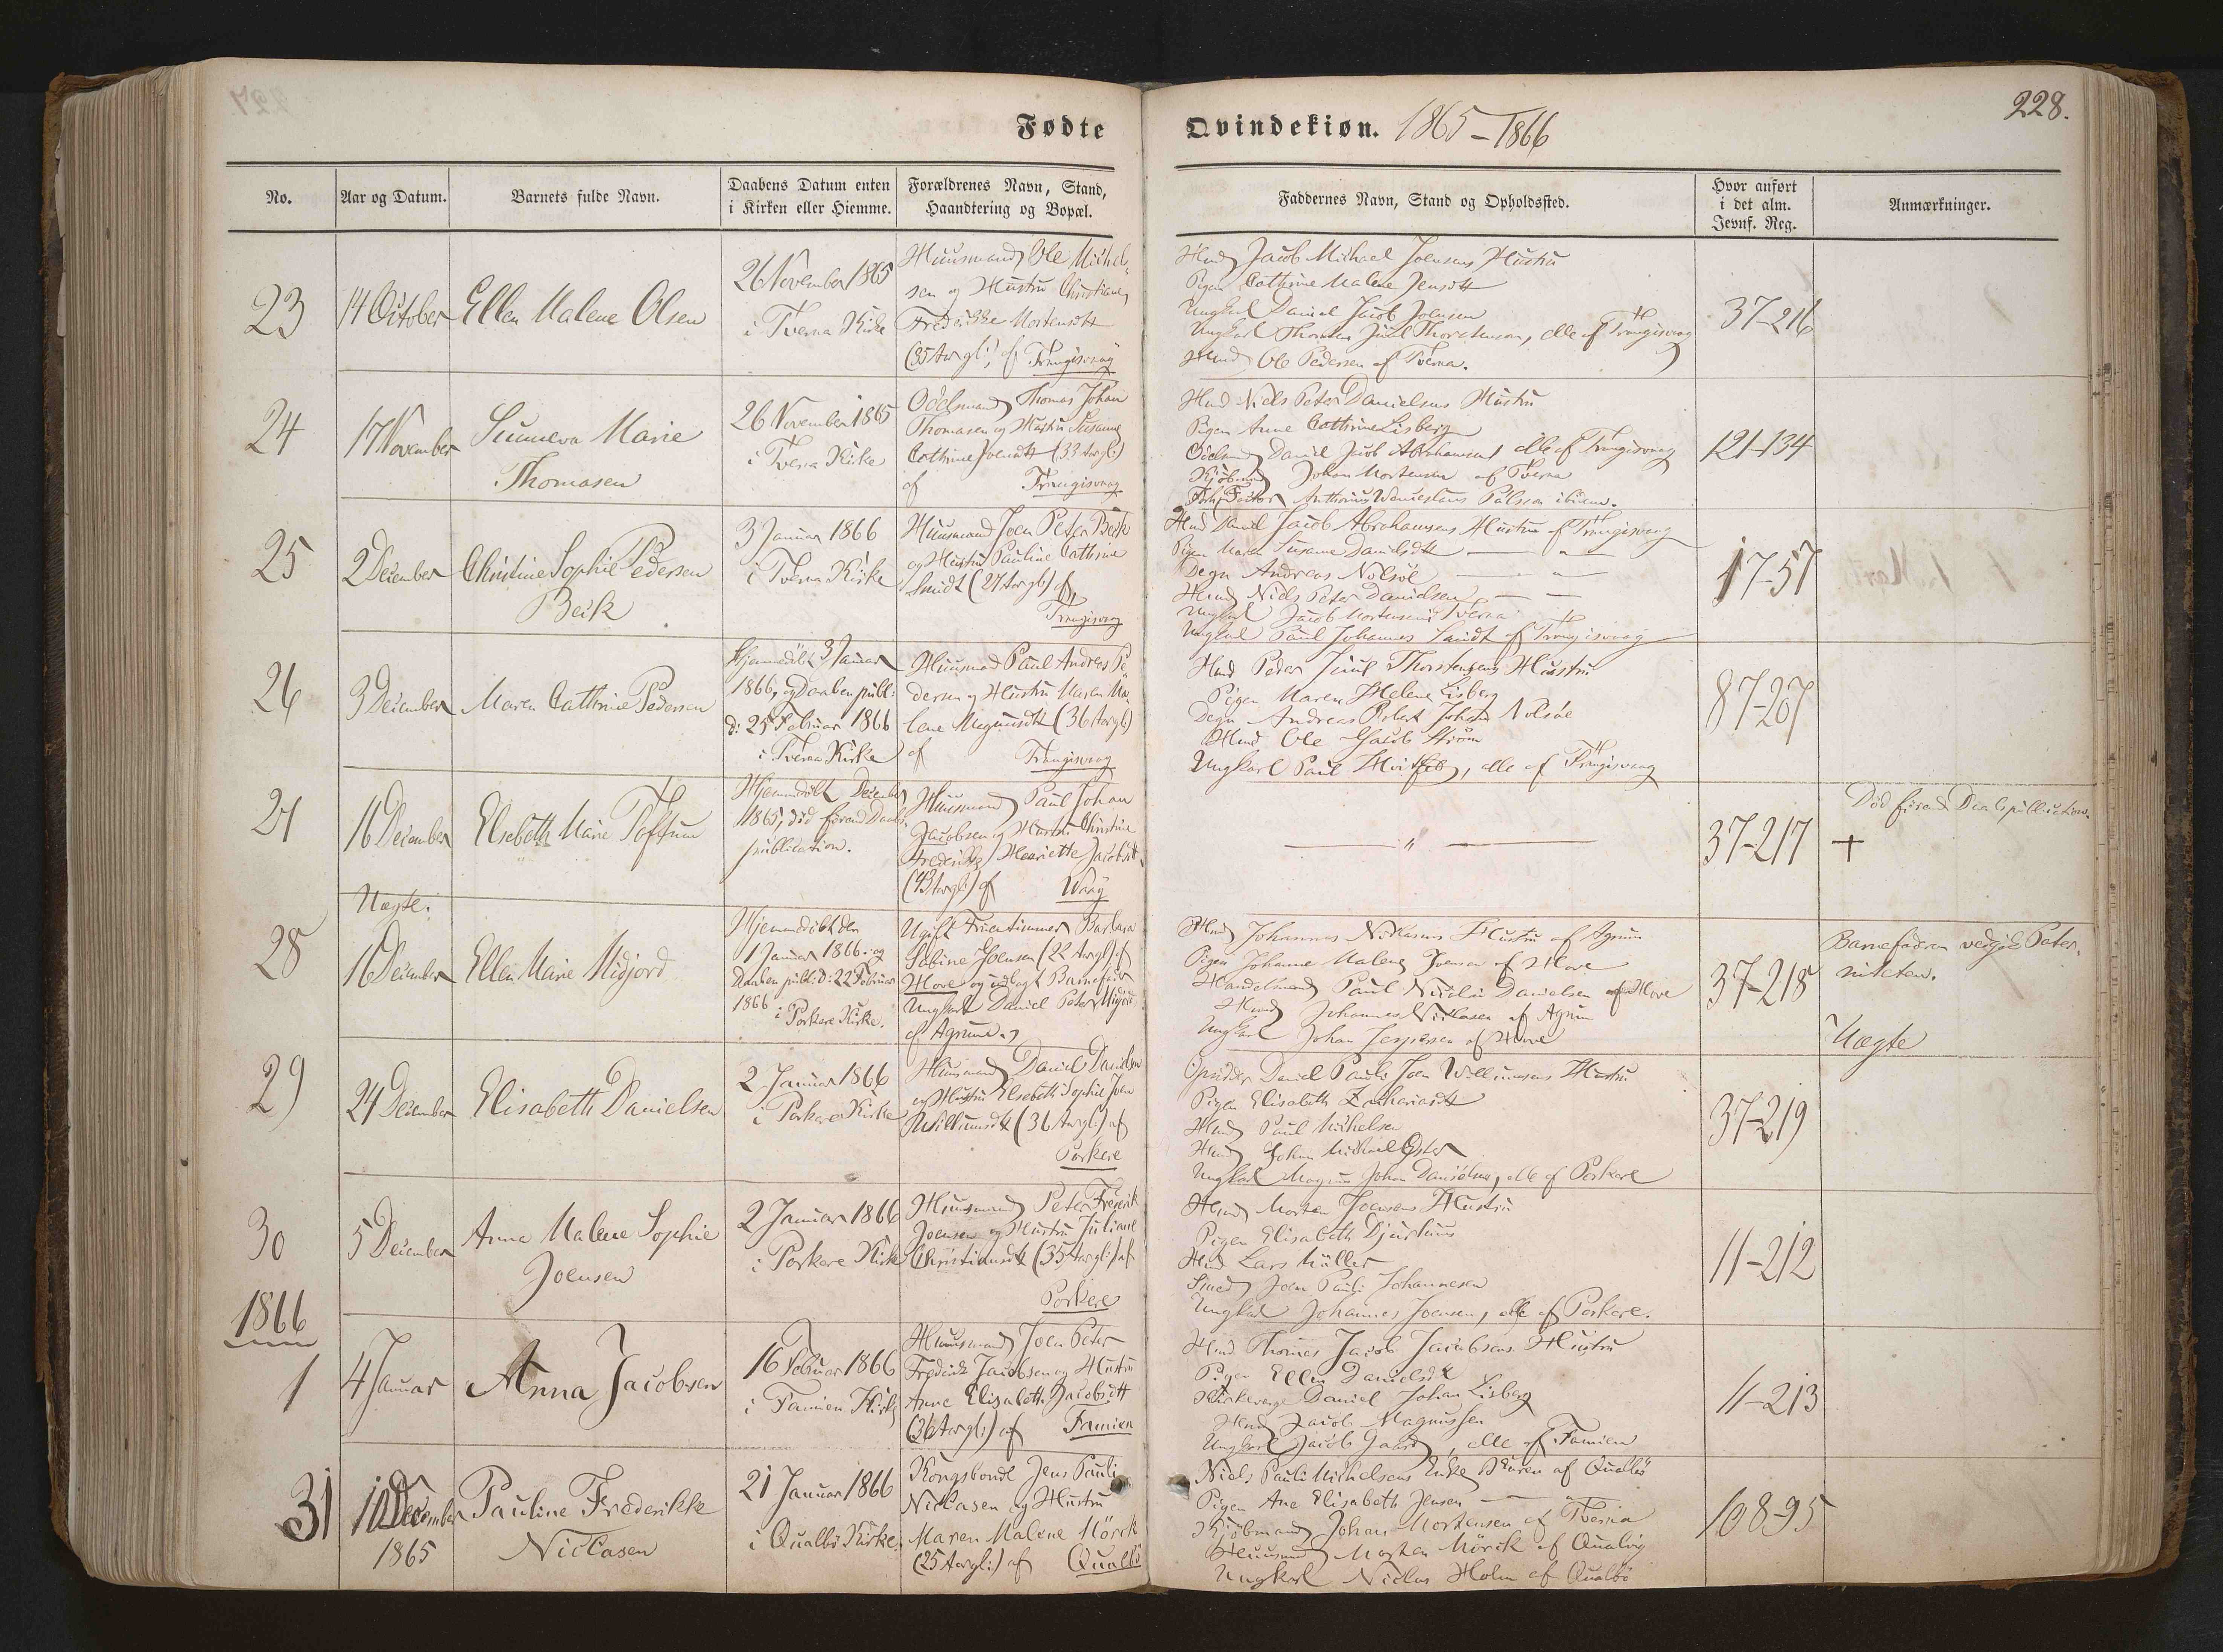 228.
Fødte
Qvindekiøn. 1865-1866
No.
Aar og Datum.
Barnets fulde Navn.
Daabens Datum enten
i Kirken eller Hiemme.
Forældrenes Navn, Stand,
Haandtering og Bopæl.
Faddernes Navn, Stand og Opholdssted.
Hvor anført
i det alm.
Jevnf. Reg.
Anmærkninger.
23
14 October
Ellen Malene Olsen
26 November 1865
i Tveraa Kirke
Huusmand Ole Michel-
sen og Hustru Christiane
Fredrikke Mortensdtt
(35 Aar gl:) af Trangisvaag
Hmd Jacob Michael Joensens Hustru
Pigen Cathrine Malene Jensdtt
Ungkarl Daniel Jacob Joensen
Ungkarl Thomas Juul Thorstensen, alle af Trangisvaag
Hmd Ole Pedersen af Tveraa.
37-216
24
17 November
Sunneva Marie
Thomasen
26 November 1865
i Tveraa Kirke
Odelsmand Thomas Johan
Thomasen og Hustru Susanne
Cathrine Joensdtt (33 Aar gl:)
af Trangisvaag
Hmd Niels Peter Danielsens Hustru
Pigen Anne Cathrine Lisberg
Odelsmd Daniel Jacob Abrahamsen alle af Trangisvaag
Kjøbmd Johan Mortensen af Tveraa
Anthonius Pálsson ibidem.
121-134
25
2 December
Christine Sophie Pedersen
Beck
3 Januar 1866
i Tveraa Kirke
Huusmand Joen Peter Beck
og Hustru Pauline Cathrine
Smidt (27 Aar gl:) af
Trangisvaag
Hmd Daniel Jacob Abrahamsens Hustru af Trangisvaag
Pigen Maren Susanne Danielsdtt — " —
Degn Andreas Nolsøe — " —
Hmd Niels Peter Danielsen — —
Ungkarl Jacob Mortensen Tveraa
Ungkarl Paul Johannes Smidt af Trangisvaag
17-57
26
3 December
Maren Cathrine Pedersen
Hjemmedøbt 3 Januar
1866, og Daaben publ:
d: 25 Februar 1866
i Tveraa Kirke
Huusmand Paul Andreas Pe-
dersen og Hustru Maren Ma-
lene Magnusdtt (36 Aar gl:)
af Trangisvaag
Hmd Peder Juul Thorstensens Hustru
Pigen Maren Helene Lisberg
Degn Andreas Robert Johan Nolsøe
Hmd Ole Jacob Strøm
Ungkarl Paul, alle af Trangisvaag
87-207
27
16 December
Elsebeth Marie Toftum
Hjemmedøbt December
1865, død førend Daabs-
publication.
Huusmand Paul Johan
Jacobsen og Hustru Christine
Fredrikke Henriette Jacobsdtt
(43 Aar gl:) af Waag
— " —
37-217
Død førend Daabspublication.
+
Uægte.
28
16 December
Ellen Marie Midjord
Hjemmedøbt den
1 Januar 1866. og
Daaben publ: d: 22 Februar
1866 i Porkere Kirke.
Ugift Fruentimmer Barbara
Sabine Joensen (22 Aar gl:) af
Hove og udlagt Barnefader
Ungkarl Daniel Peter Migjord
af Agrum.
Hmd Johannes Niclasens Hustru af Agrum
Pigen Johanne Malene Joensen af Hove
Handelsmand Paul Nicolai Danielsen af Hove
Hmd Johannes Niclasen af Agrum
Ungkarl Johan Jespersen af Hove
37-218
Barnefaderen vedgik Pater-
niteten.
Uægte
29
24 December
Elisabeth Danielsen
2 Januar 1866
i Porkere Kirke
Huusmand Daniel Danielsen
og Hustru Elsebeth Sophie Joen
Willumsdtt (36 Aar gl:) af
Porkere
Opsidder Daniel Pauli Joen Willumsens Hustru
Pigen Elisabeth Zachariasdtt
Hmd Paul Michelsen
Hmd Johan Michael
Ungkarl Magnus Johan Danielsen, alle af Porkere
37-219
30
5 December
Anna Malene Sophie
Joensen
2 Januar 1866
i Porkere Kirke
Huusmand Peter Frederik
Joensen og Hustru Juliane
Christiansdtt (35 Aar gl:) af
Porkere
Hmd Morten Joensens Hustru
Pigen Elisabeth Djurhuus
Hmd Lars Müller
Smed Joen Pauli Johannesen
Ungkarl Johannes Joensen, alle af Porkere.
11-212
1866
1
4 Januar
Anna Jacobsen
16 Februar 1866
i Famien Kirke
Huusmand Joen Peter
Frederik Jacobsen og Hustru
Anne Elisabeth Jacobsdtt
(36 Aar gl:) af Famien
Hmd Thomas Jacob Jacobsens Hustru
Pigen Ellen Danielsdtt
Kirkeværge Daniel Johan Lisberg
Hmd Jacob Magnussen
Ungkarl Jacob Gaard, alle af Famien
11-213
31
10 December
1865
Pauline Frederikke
Niclasen
21 Januar 1866
i Qualbø Kirke.
Kongsbonde Jens Pauli
Niclasen og Hustru
Maren Malene Mörck
(25 Aar gl:) af Qualbø
Niels Pauli Michelsens Enke Maren af Qualbø
Pigen Ane Elisabeth Jensen — " —
Kjøbmand Johan Mortensen af Tveraa
Huusmand Morten Mörck af Qualvig
Ungkarl Niclas Holm af Qualbø
108-95